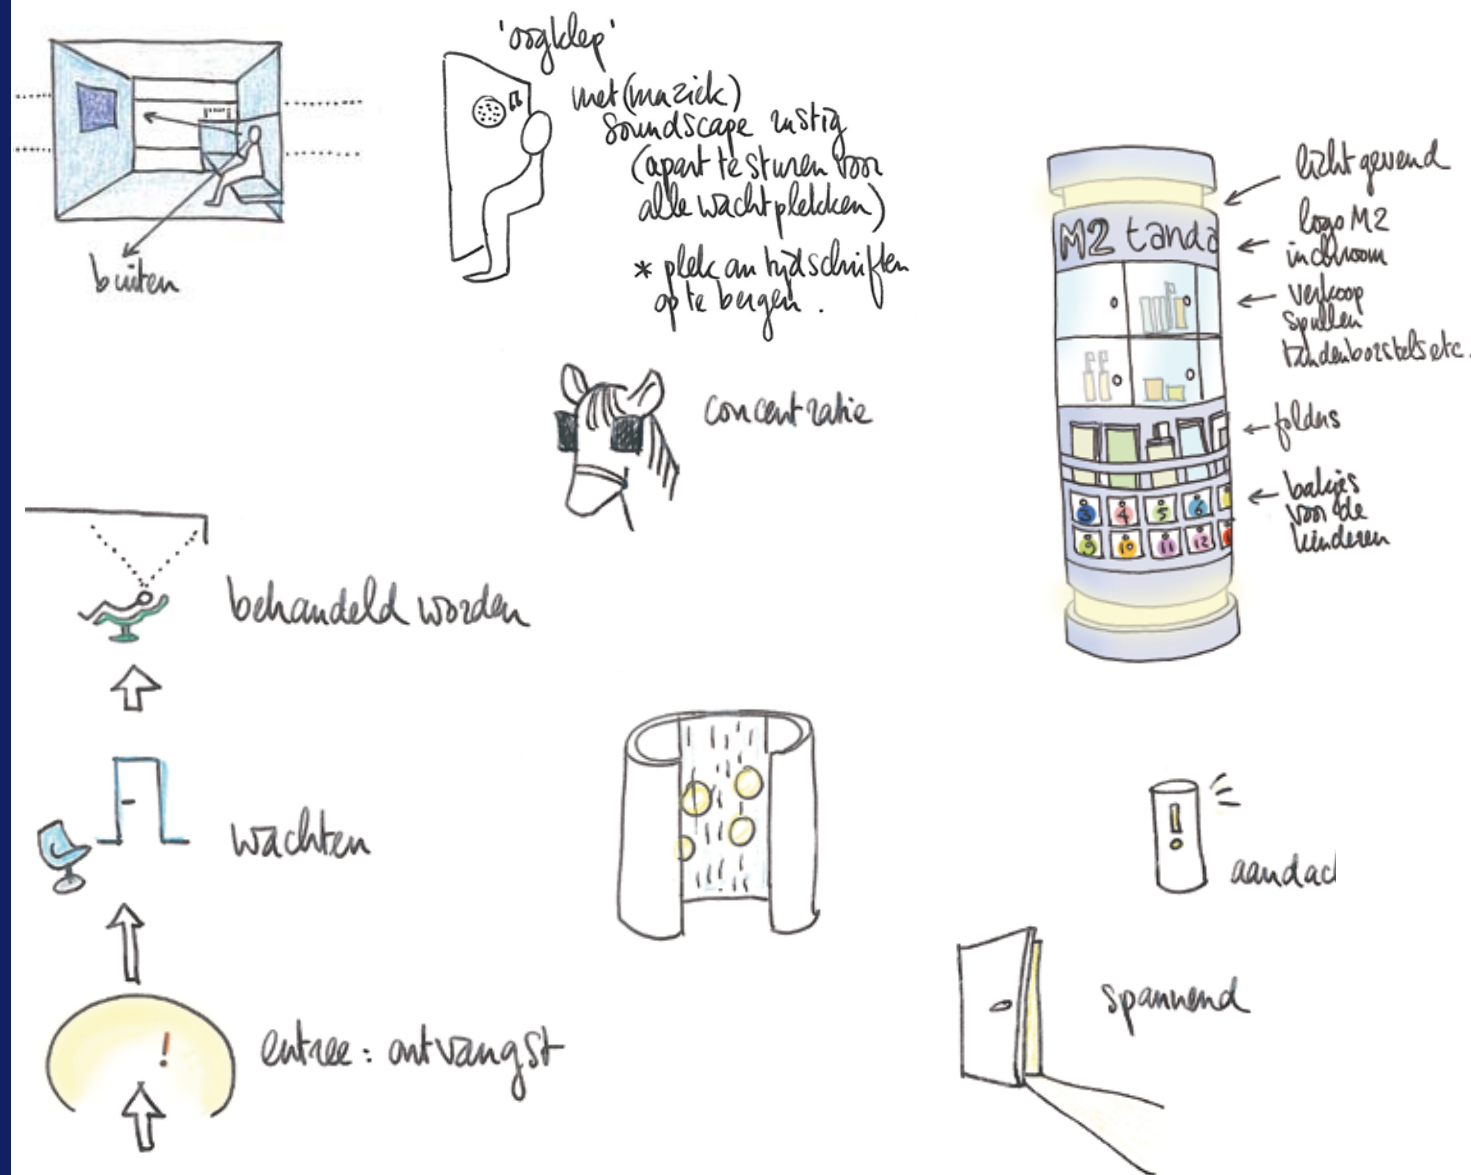 'oogklep'
met (muziek)
soundscape rustig
(apart te sturen voor
alle wachtplekken)
* plek om tijdschriften
op te bergen.
buiten
concentratie
lichtgevend
logo M2
in chroom
verkoop
spullen
tandenborstels etc.
folders
bakjes
voor de
kinderen
M2 tanda
3 4 5 6
9 10 11 12
behandeld worden
wachten
entree: ontvangst
!
!
aandac
spannend